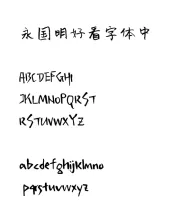 永国明好看字体中
ABCDEFGHI
JKLMNOPQRST
RSTUVWXYZ
abcdefghijklmno
pqrstuvwxyz